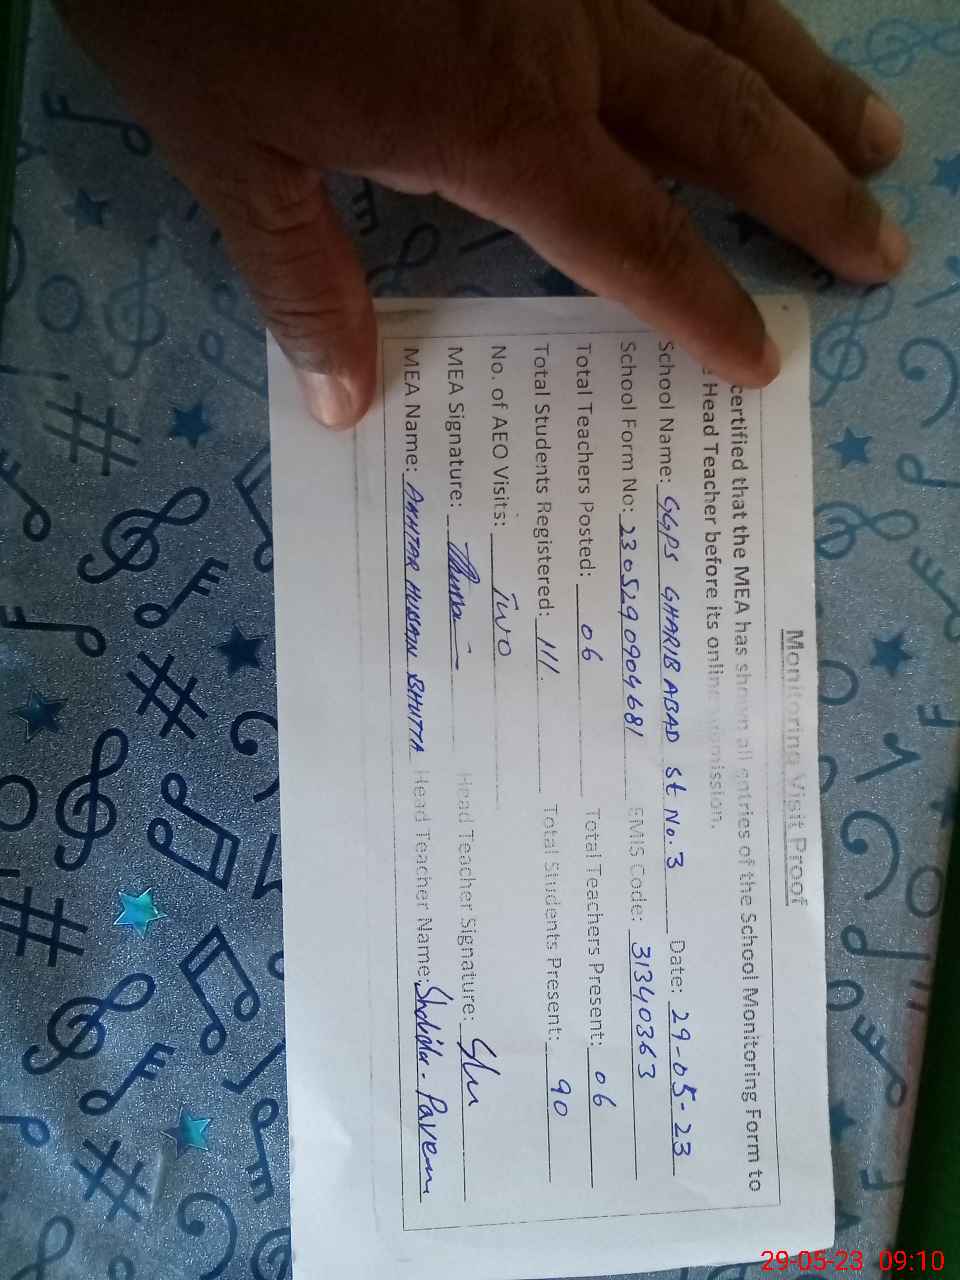 Monitoring Visit Proof
certified that the MEA has shown all entries of the School Monitoring Form to
Head Teacher before its online submission.
School Name: GGPS GHARIB ABAD St No. 3 Date: 29-05-23
School Form No: 230529090904681 EMIS Code: 31340363
Total Teachers Posted: 06 Total Teachers Present: 06
Total Students Registered: 111. Total Students Present: 90
No. of AEO Visits: Two
MEA Signature: Head Teacher Signature:
MEA Name: AKHTAR HUSSAIN BHUTTA Head Teacher Name:
29-05-23 09:10